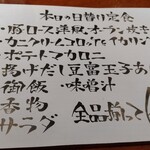 本日の日替り定食
・豚ロース洋風オーブン焼き
・カニクリームコロッケとイカリング
・ポテトマカロニ
・揚げだし豆富玉子あん
・御飯 ・味噌汁
・香物
・サラダ
全品揃って